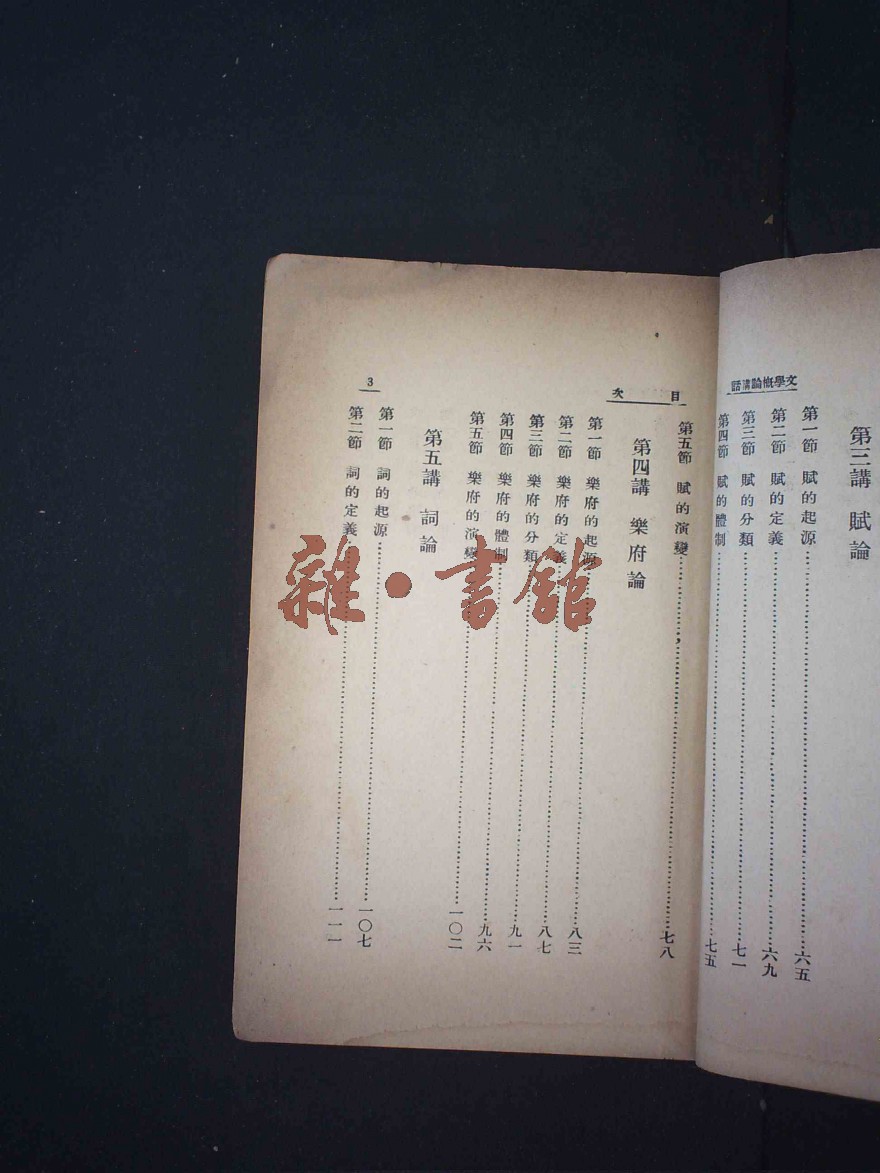 文學概論講話
第三講 賦論
第一節 賦的起源……六五
第二節 賦的定義……六九
第三節 賦的分類……七一
第四節 賦的體制……七五
目次
第五節 賦的演變……七八
第四講 樂府論
第一節 樂府的起源……八三
第二節 樂府的定義……八七
第三節 樂府的分類……九一
第四節 樂府的體制……九六
第五節 樂府的演變……一〇二
第五講 詞論
第一節 詞的起源……一〇七
第二節 詞的定義……一一一
3
雜·書館